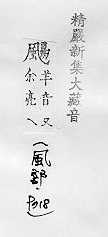 精嚴新集大藏音
颺
羊音又
余亮乀
(風部·P318)